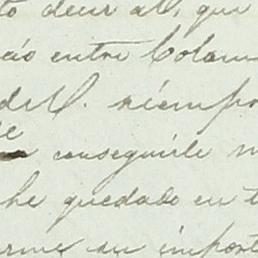 to decir al, que
entre Colom
de V. siempre
conseguirle
he quedado en t
su import